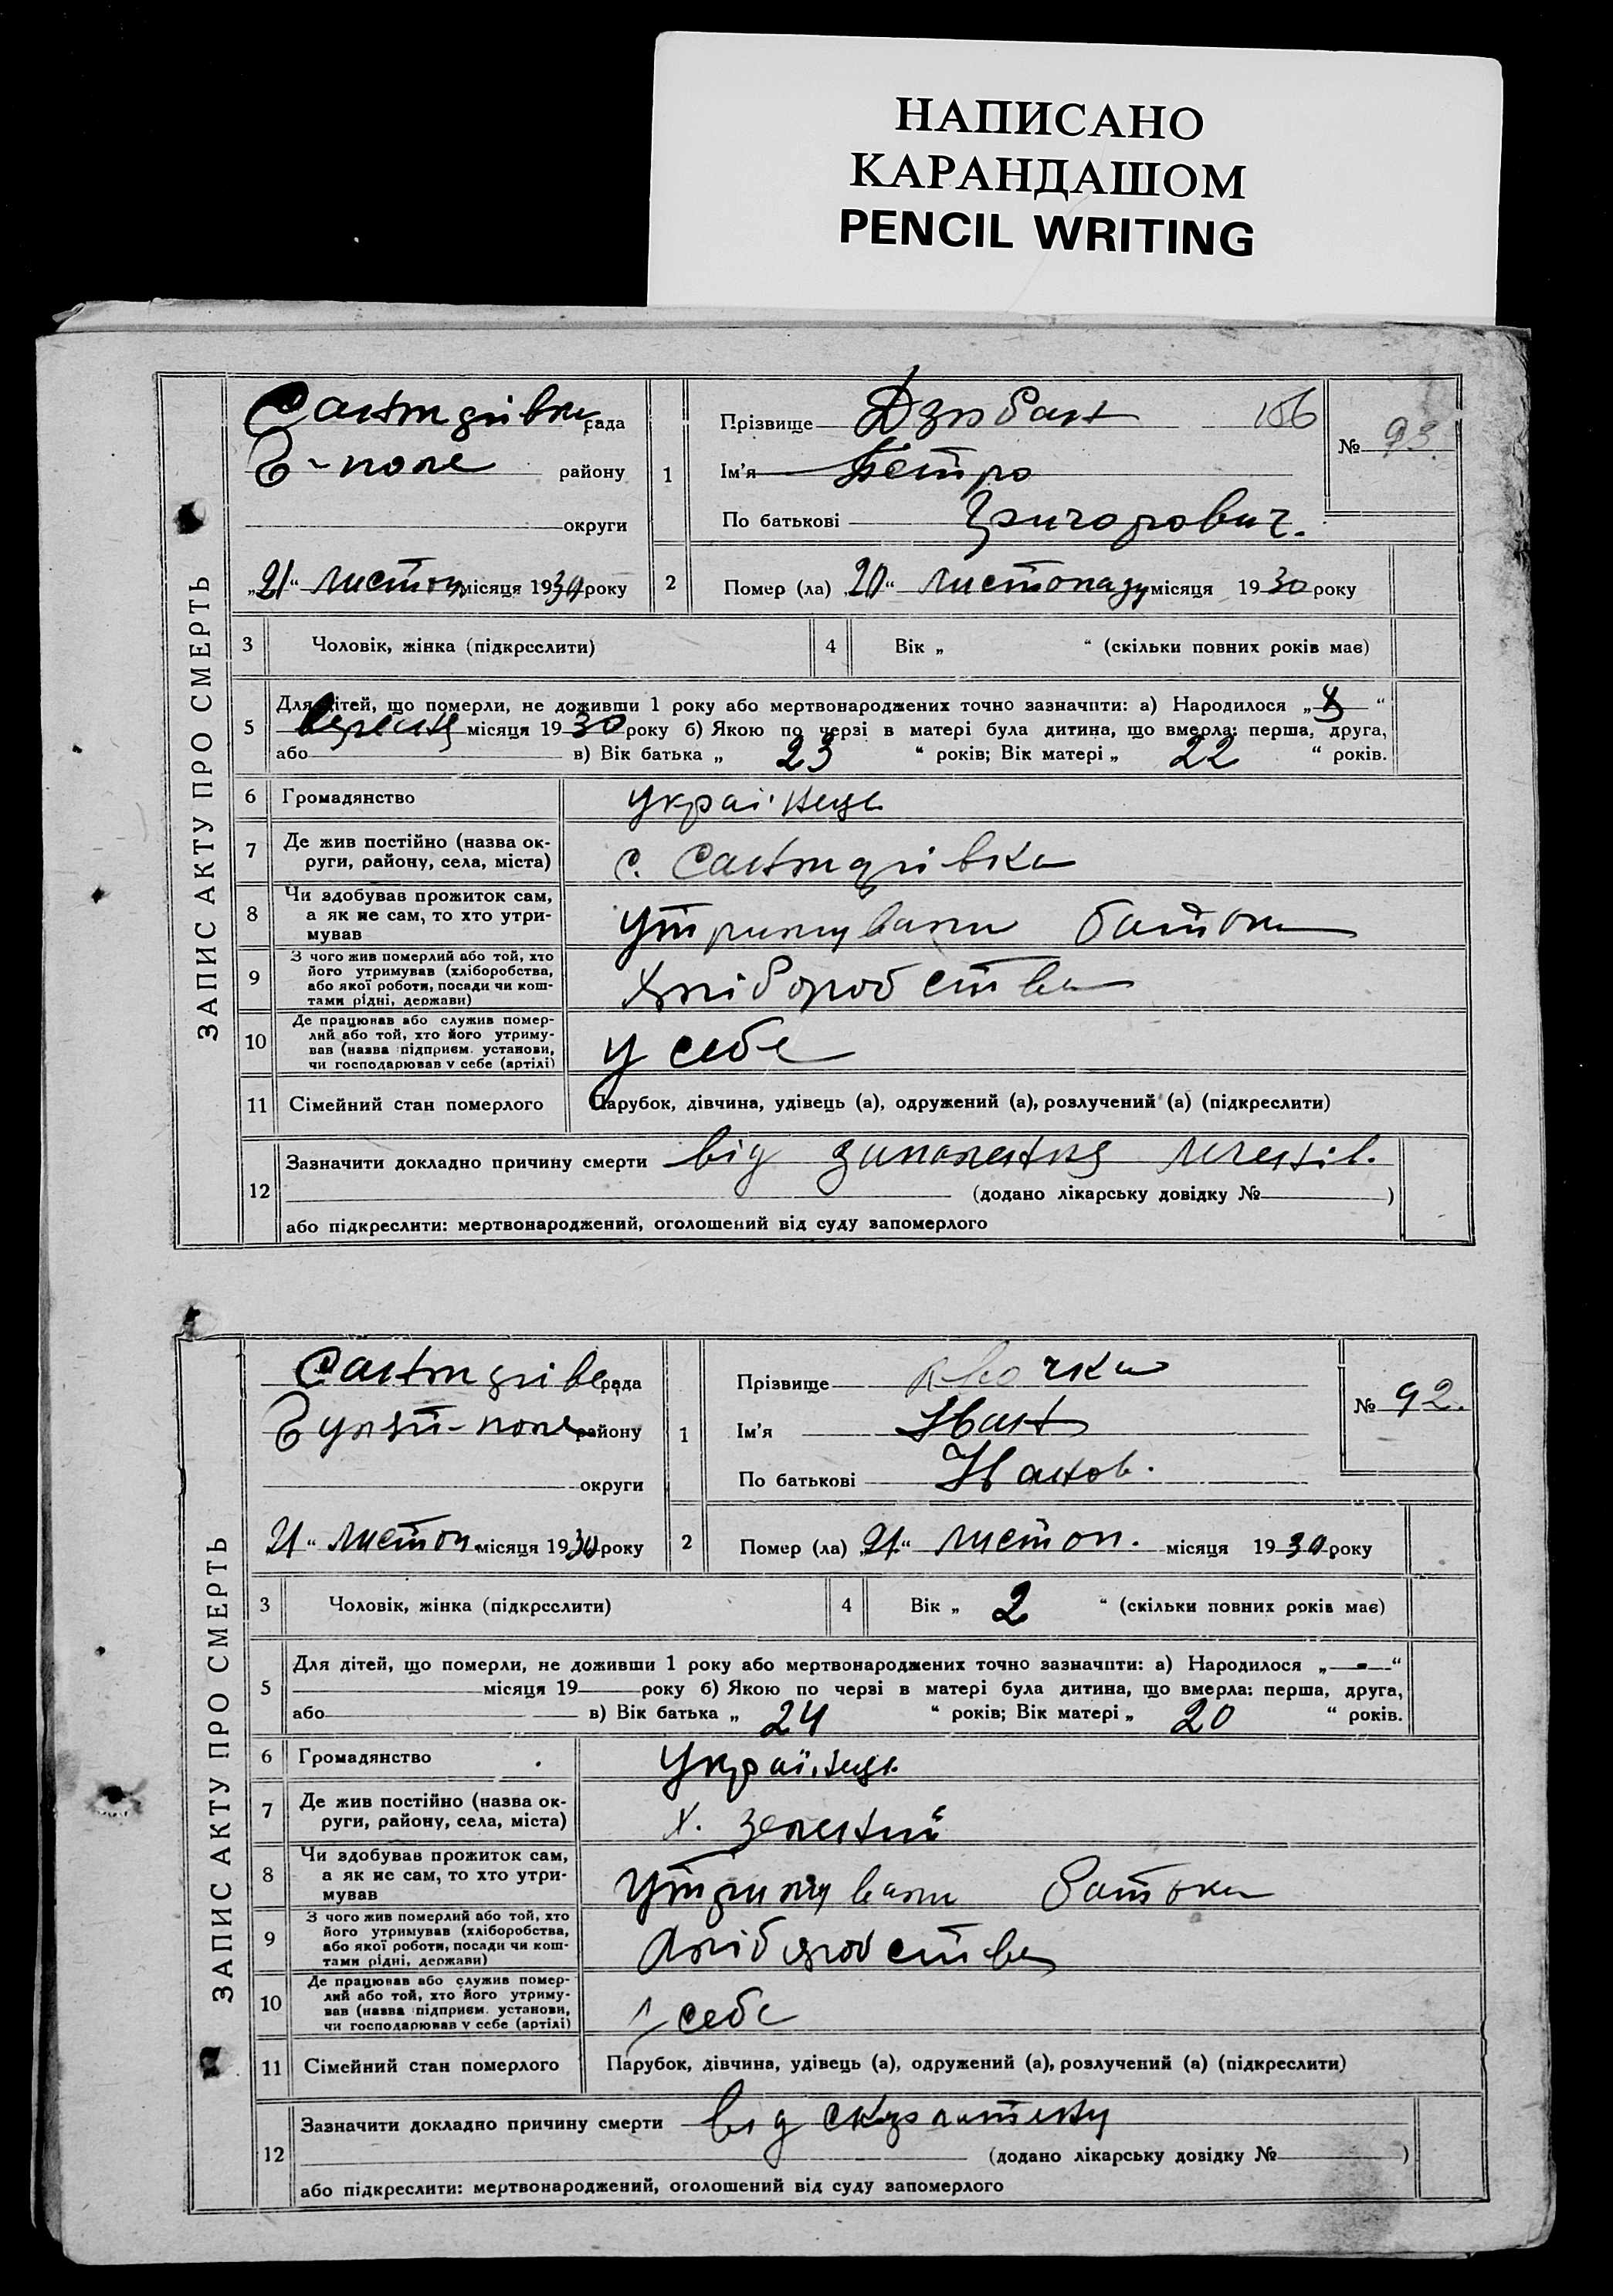 НАПИСАНО
КАРАНДАШОМ
PENCIL WRITING
ЗАПИС АКТУ ПРО СМЕРТЬ
рада
Г-поле району
округи
„21“ листоп місяця 1930 року
1 Прізвище Дзюбан 156
Ім'я Петро
По батькові Григорович.
№ 93.
2 Помер (ла) „20“ листопаду місяця 1930 року
3 Чоловік, жінка (підкреслити) 4 Вік „ “ (скільки повних років має)
5 Для дітей, що померли, не доживши 1 року або мертвонароджених точно зазначити: а) Народилося „ “
вересня місяця 1930 року б) Якою по черзі в матері була дитина, що вмерла: перша, друга,
або в) Вік батька „ 23 “ років; Вік матері „ 22 “ років.
6 Громадянство українець
7 Де жив постійно (назва ок-
руги, району, села, міста) с. Сантурівка
8 Чи здобував прожиток сам,
а як не сам, то хто утри-
мував утримували батьки
9 З чого жив померлий або той, хто
його утримував (хліборобства,
або якої роботи, посади чи кош-
тами рідні, держави) хліборобства
10 Де працював або служив помер-
лий або той, хто його утриму-
вав (назва підприєм. установи,
чи господарював у себе (артілі) у себе
11 Сімейний стан померлого Парубок, дівчина, удівець (а), одружений (а), розлучений (а) (підкреслити)
12 Зазначити докладно причину смерти від запалення легенів.
(додано лікарську довідку № )
або підкреслити: мертвонароджений, оголошений від суду запомерлого
ЗАПИС АКТУ ПРО СМЕРТЬ
рада
Гуляй-поле району
округи
21“ листоп. місяця 1930 року
1 Прізвище Квочка
Ім'я Іван
По батькові Іванов.
№ 92.
2 Помер (ла) „21“ листоп. місяця 1930 року
3 Чоловік, жінка (підкреслити) 4 Вік „ 2 “ (скільки повних років має)
5 Для дітей, що померли, не доживши 1 року або мертвонароджених точно зазначити: а) Народилося „ - “
місяця 19 року б) Якою по черзі в матері була дитина, що вмерла: перша, друга,
або в) Вік батька „ 24 “ років; Вік матері „ 20 “ років.
6 Громадянство Українець.
7 Де жив постійно (назва ок-
руги, району, села, міста) х. Зелений
8 Чи здобував прожиток сам,
а як не сам, то хто утри-
мував утримували батьки
9 З чого жив померлий або той, хто
його утримував (хліборобства,
або якої роботи, посади чи кош-
тами рідні, держави) хліборобства
10 Де працював або служив помер-
лий або той, хто його утриму-
вав (назва підприєм. установи,
чи господарював у себе (артілі) у себе
11 Сімейний стан померлого Парубок, дівчина, удівець (а), одружений (а), розлучений (а) (підкреслити)
12 Зазначити докладно причину смерти від скарлатини
(додано лікарську довідку № )
або підкреслити: мертвонароджений, оголошений від суду запомерлого